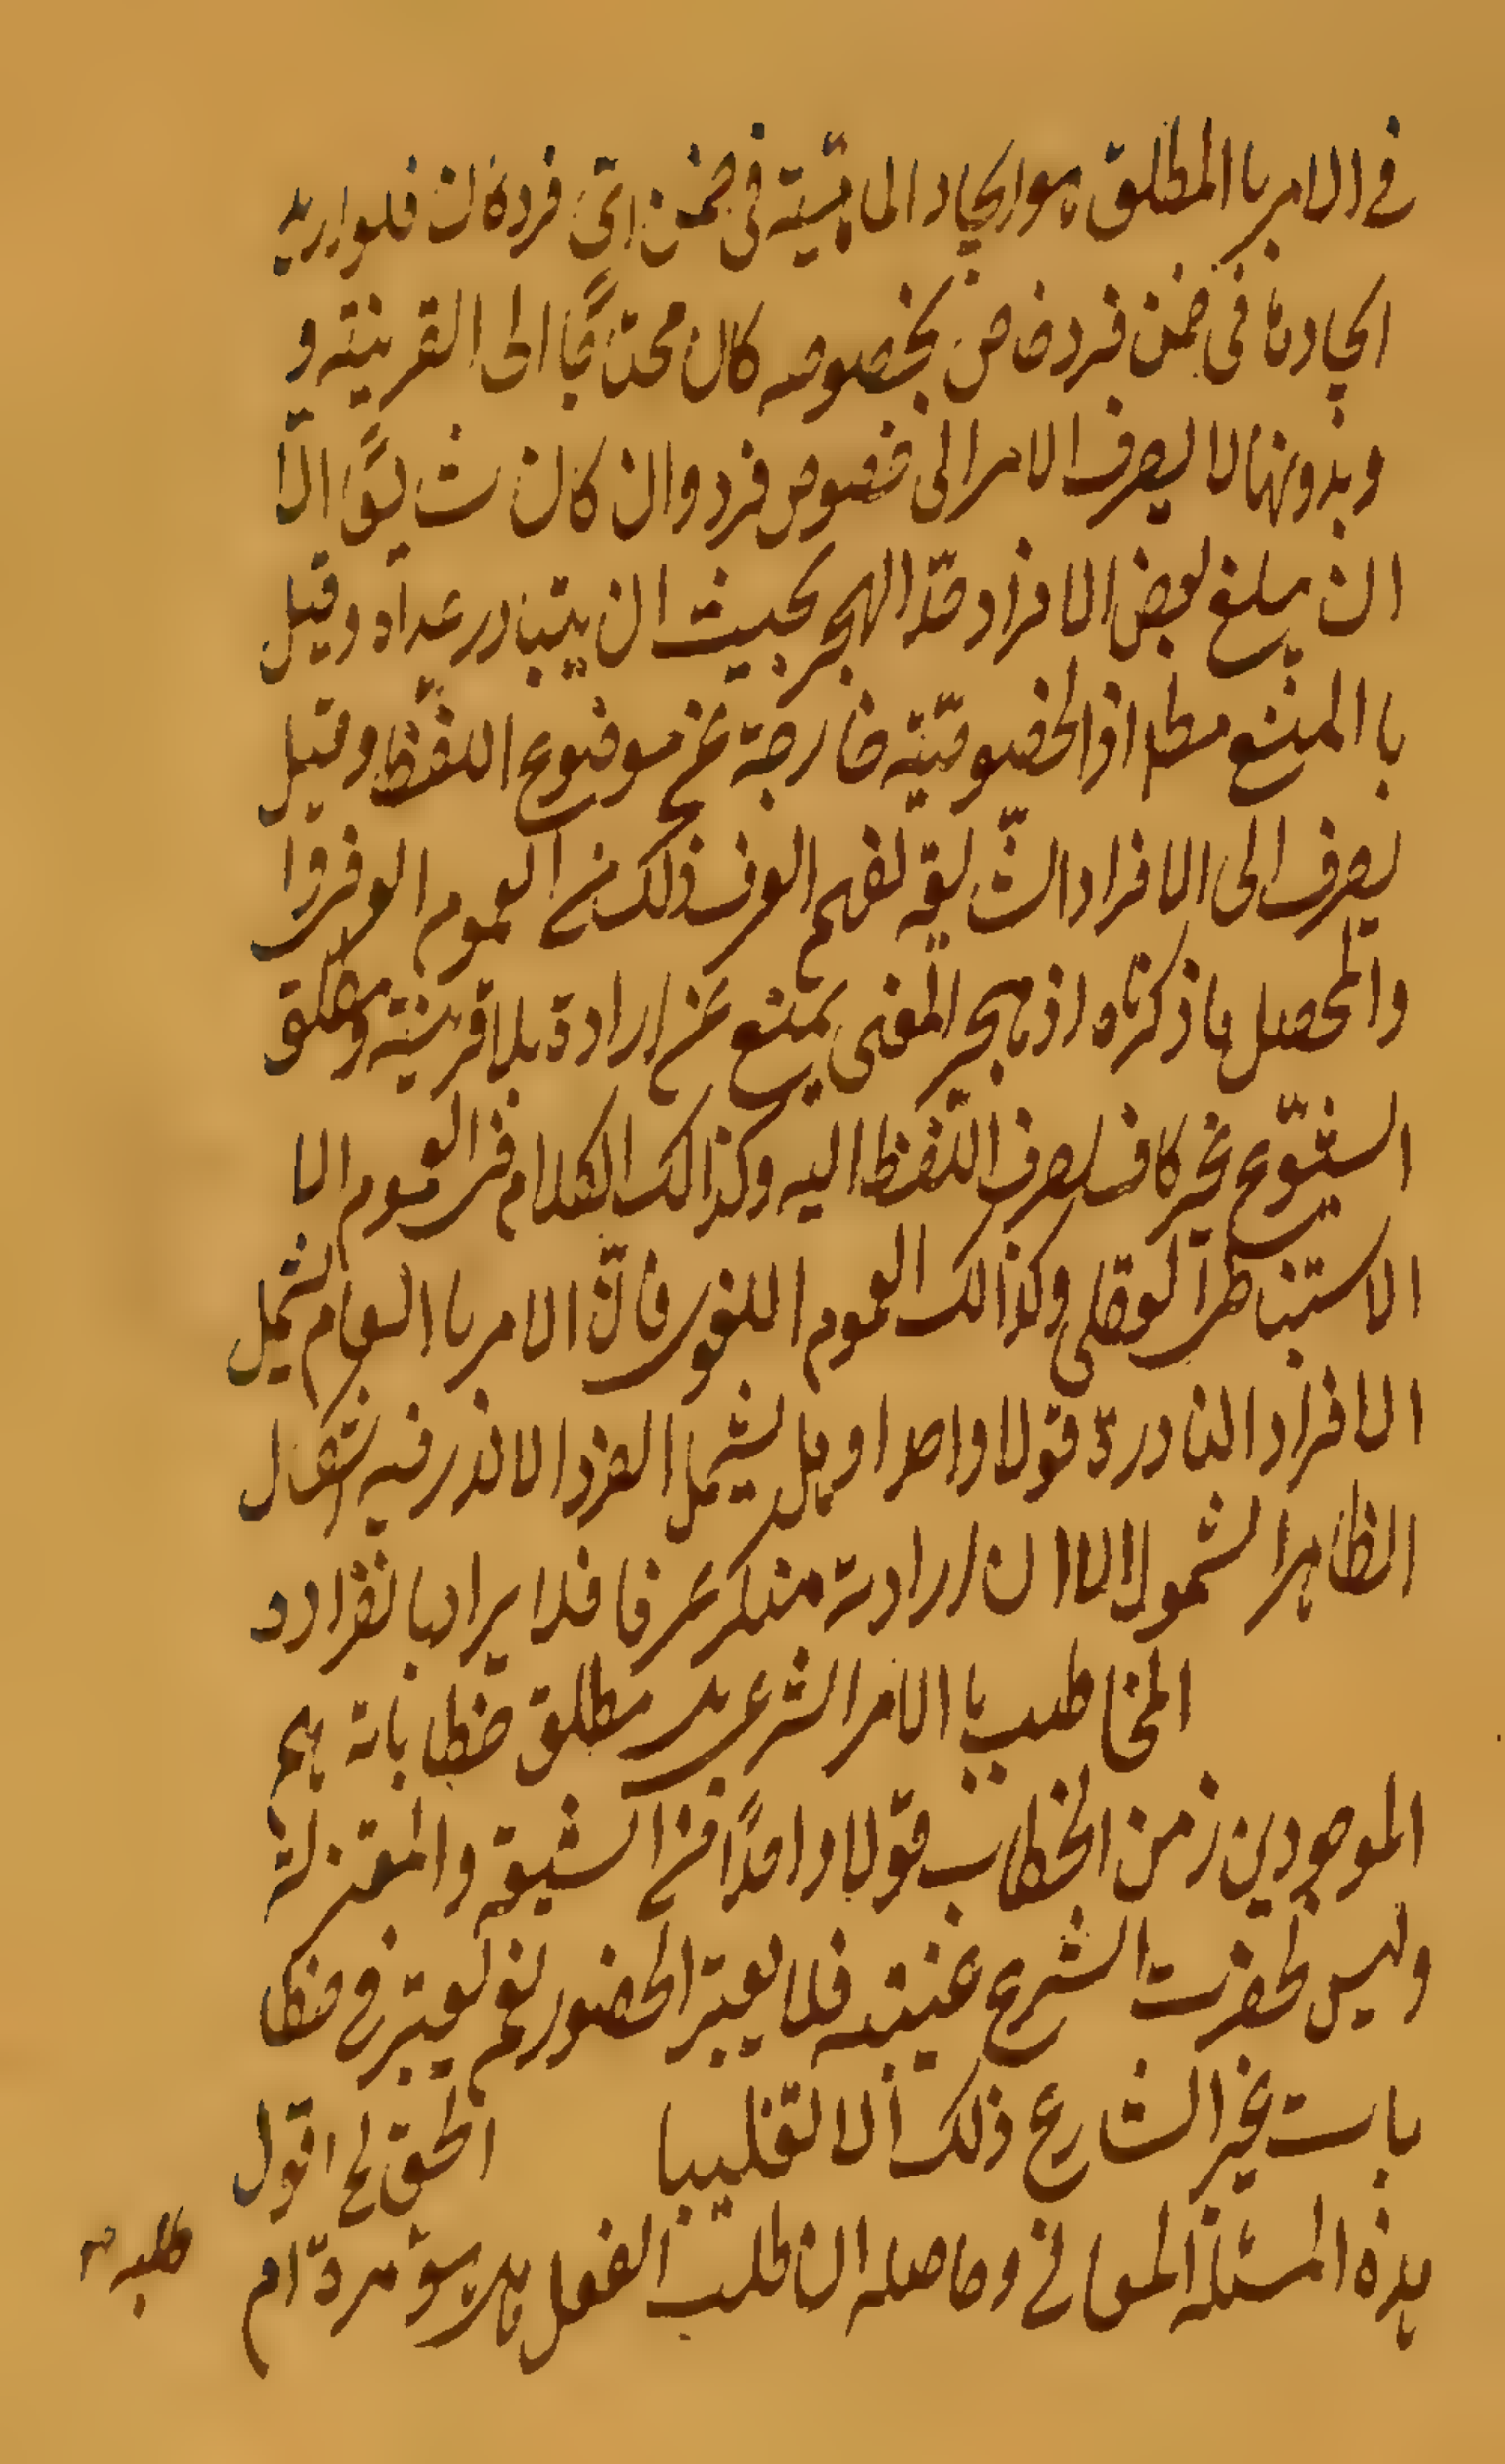 في الامر باالمطلق هو ايجاد الماهيّية في ضمن ايّ فرد كان فلو اريد
ايجادها في ضمن فرد خاص بخصوصه كان محتاجًا الى القرينة و
وبدونها لا يصرف الامر الى خصوص فرد وان كان شايعًا الّا
ان يبلغ بعض الافراد حدّ الهجر بحيث ان يتبادر عداه وقيل
باالمنع مطلـ اذ الخصوصيّة خارجة عن موضوع اللفظ وقيل
يصرف الى الافراد الشّايعة لفهم العرف ذلك من العموم الوفروا
والمحصل ما ذكرناه اذ هجر المعنى يمنع عن ارادة بلا قرينة ومطلق
الشيّوع غير كاف لصرف اللّفظ اليه وكذالك الكلام في العموم الا
الاستنباطى العقلى وكذالك العموم اللغوى فانّ الامر باالعام يشمل
الافراد النادرة قولا واحدا وهل يشمل الفرد الاندر فيه اشكال
الظاهر الشمول الا ان ارادته منكر عرفا فلا يراد بانفراده
المخاطب باالامر الشرعى بل مطلق خطاباته هم
الموجودين زمن الخطاب قولا واحدًا من الشيعة والمعتزلة
وليس لحضرت الشرع غيبته فلا يعتبر الحضور نعم يعتبر في خطا
بات غير الشارع ذلك الا تغليبا الحق لح اقول
هذه المسئلة المعانى وحاصله ان طلب الفعل هل هو مردّ ام
طلبه م